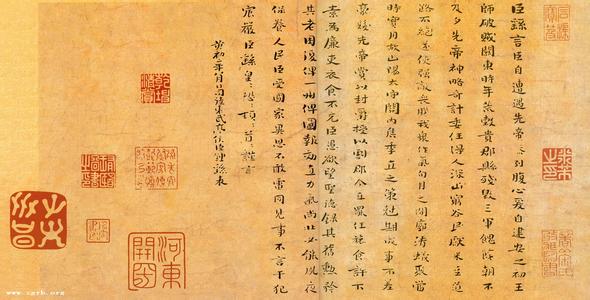 臣繇言臣自遭遇先帝忝列腹心爰自建安之初王
師破賊關東時年荒穀貴郡縣殘毀三軍餽饟朝不
及夕先帝神略奇計委任得人深山窮谷民獻米豆道
路不絕遂使強敵喪膽我衆作氣旬月之間廓清蟻聚當
時實用故山陽太守關內侯季直之策剋期成事不差
豪髮先帝賞以封爵授以劇郡今直罷任旅食許下
素爲廉吏衣食不充臣愚欲望聖德錄其舊勲矜
其老困復俾一州俾圖報效直力氣尚壯必能夙夜
保養人民臣受國家異恩不敢雷同見事不言干犯
宸嚴臣繇皇〻恐〻頓〻首〻謹言
黃初二年八月日司徒東武亭侯臣鍾繇表
河東